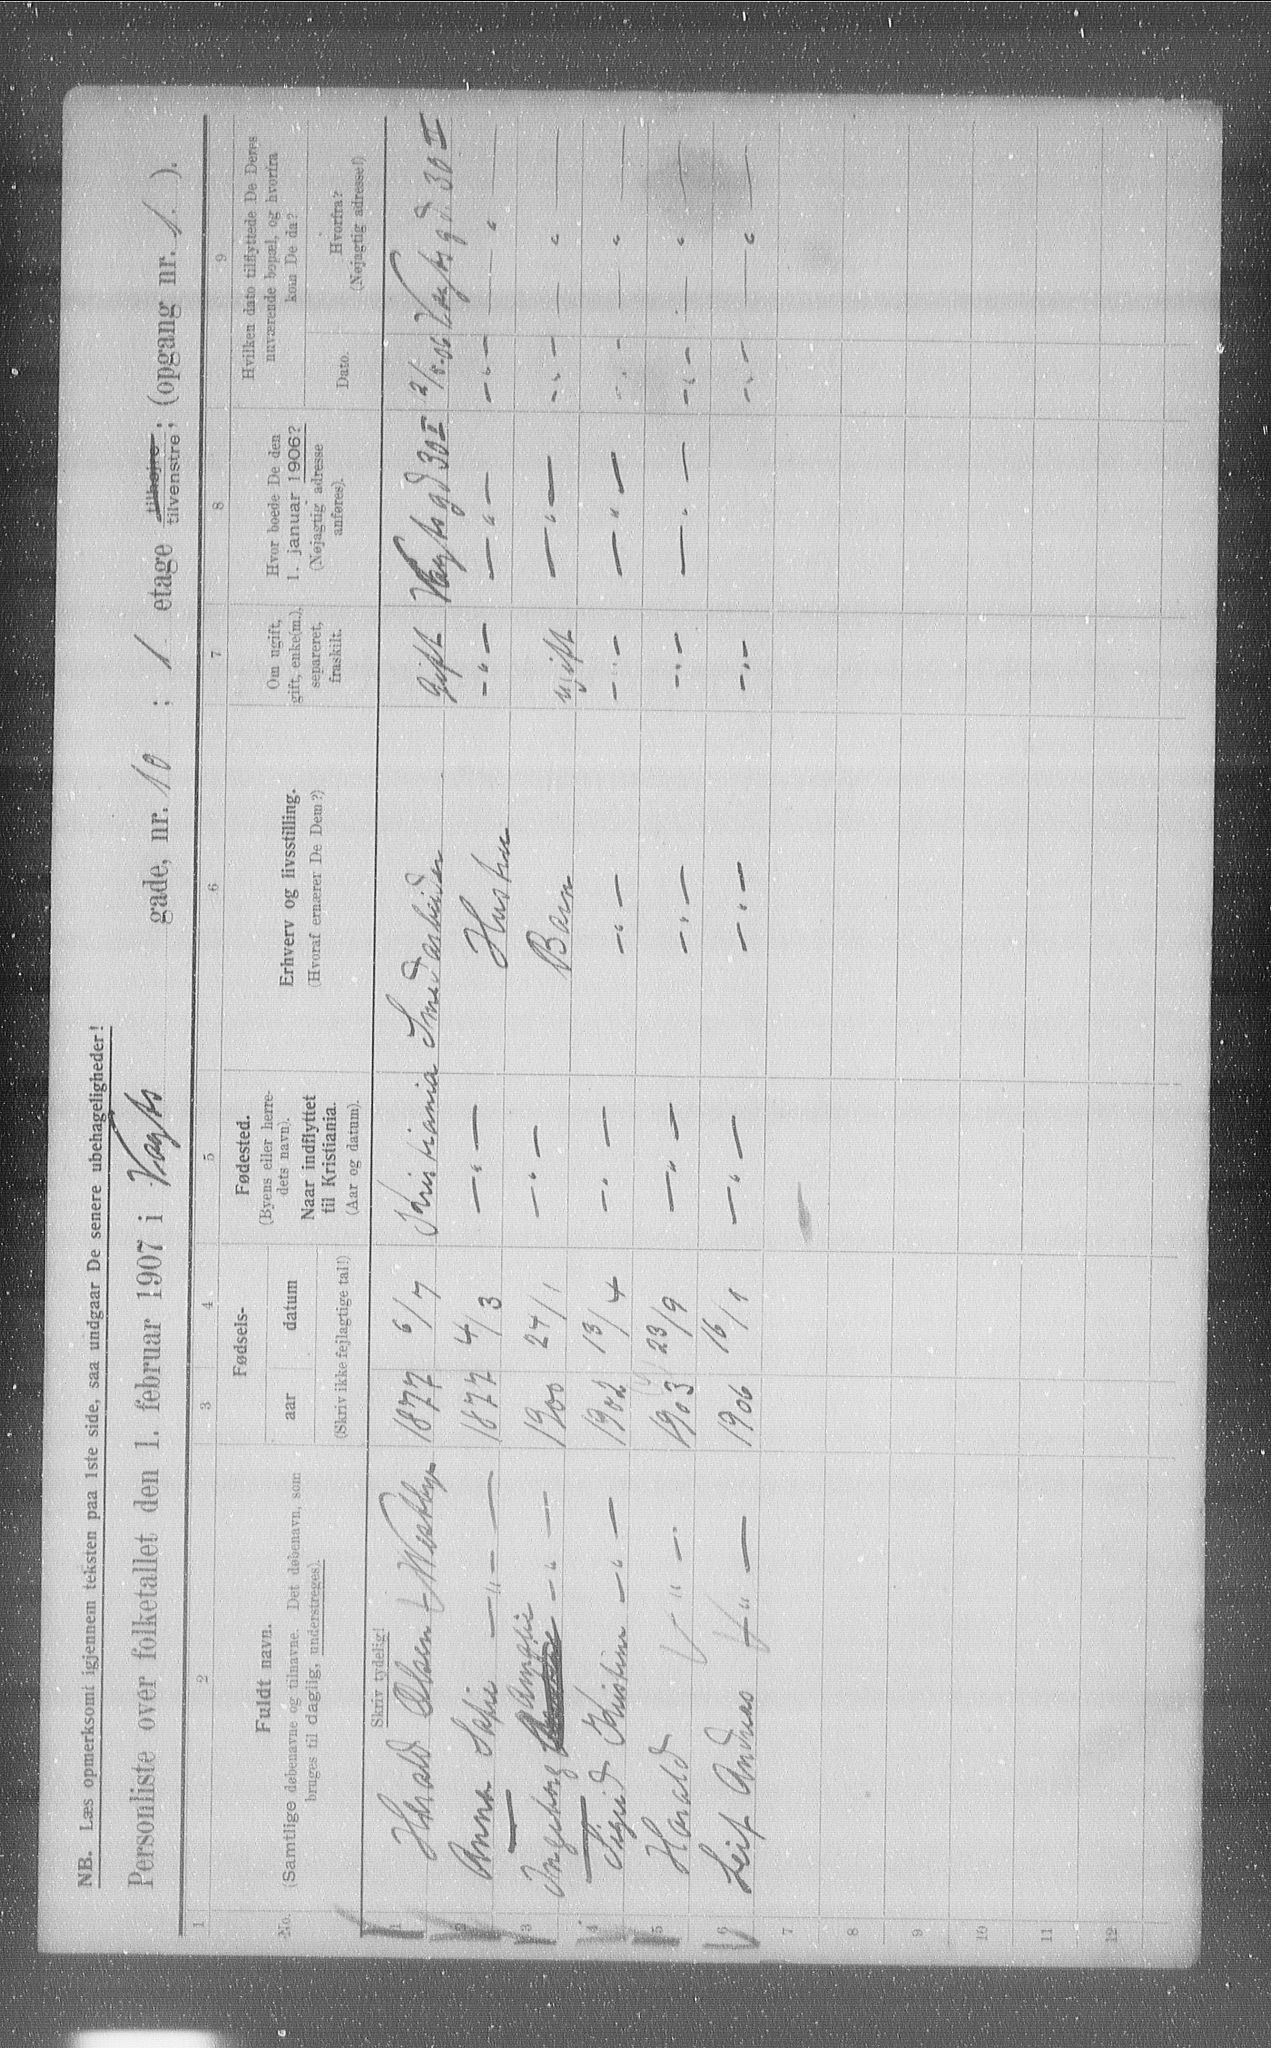 NB. Læs opmerksomt igjennem teksten paa 1ste side, saa undgaar De senere ubehageligheder!
Personliste over folketallet den 1. februar 1907 i Vagts gade, nr. 10 ; 1 etage tilhøjre tilvenstre; (opgang nr. 1. ).
1 2 3 4 5 6 7 8 9
No.
Fuldt navn.
(Samtlige døbenavne og tilnavne. Det døbenavn, som
bruges til daglig, understreges).
Fødsels-
aar datum
(Skriv ikke fejlagtige tal!)
Fødested.
(Byens eller herre-
dets navn).
Naar indflyttet
til Kristiania.
(Aar og datum).
Erhverv og livsstilling.
(Hvoraf ernærer De Dem?)
Om ugift,
gift, enke(m.),
separeret,
fraskilt.
Hvor boede De den
1. januar 1906?
(Nøjagtig adresse
anføres).
Hvilken dato tilflyttede De Deres
nuværende bopæl, og hvorfra
kom De da?
Dato.
Hvorfra?
(Nøjagtig adresse!)
Skriv tydelig!
1 Harald Olsen 1877 6/7 Kristiania Smedarbeider Gift Vagts gd 30 I Vagts gd. 30 II
2 Anna Sofie — " — 1877 4/3 — " — Hustru — " — — " — — " — — " —
3 Ingeborg — " — 1900 24/1 — " — Barn ugift — " — — " — — " —
4 Sigrid Kristine — " — 1902 13/4 — " — — " — — " — — " — — " — — " —
5 Harald " — 1903 23/9 — " — — " — — " — — " — — " — — " —
6 Leif Andreas " — 1906 16/1 — " — — " — — " — — " — — " —
7
8
9
10
11
12